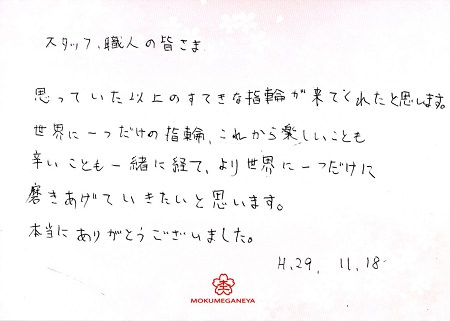 スタッフ、職人の皆さま
思っていた以上のすてきな指輪が来てくれたと思います。
世界に一つだけの指輪、これから楽しいことも
辛いことも一緒に経て、より世界に一つだけに
磨きあげていきたいと思います。
本当にありがとうございました。
H.29. 11.18
MOKUMEGANEYA